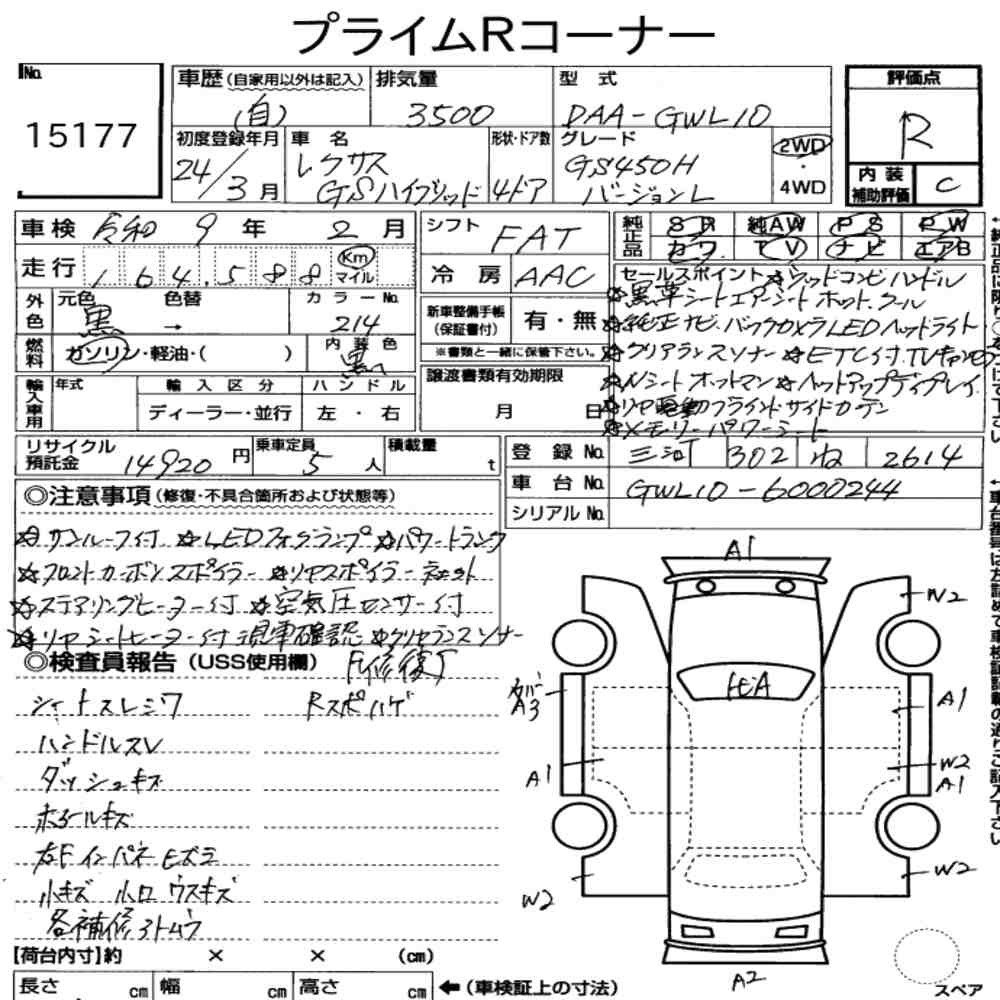 プライムRコーナー
No.
15177
車歴(自家用以外は記入)
(自)
排気量
3500
型式
DAA-GWL10
初度登録年月
24/3月
車名
レクサス
GSハイブリッド
形状・ドア数
4ドア
グレード
GS450H
バージョンL
2WD
・
4WD
評価点
R
内装
補助評価
C
車検 令和 9年 2月
走行 164,588 Km
マイル
外色
元色 色替
黒 →
カラーNo.
214
燃料
ガソリン・軽油・( )
内装色
黒
輸入車用
年式
輸入区分
ディーラー・並行
ハンドル
左・右
シフト
FAT
冷房
AAC
新車整備手帳
(保証書付)
有・無
※書類と一緒に保管下さい。
譲渡書類有効期限
月 日
純正品
SR 純AW PS PW
カワ TV ナビ エアB
セールスポイント ☆ウッドコンビハンドル
☆黒革シートエアーシートホット、クール
☆純正ナビ、バックカメラLEDヘッドライト
☆クリアランスソナー ☆ETC付
☆Nシートオットマン☆ヘッドアップディプレイ
☆リヤ電動ブラインドサイドカーテン
☆メモリーパワーシート
リサイクル
預託金
14920円
乗車定員
5人
積載量
t
登録No. 三河 302 ね 2614
車台No. GWL10-6000244
シリアルNo.
◎注意事項(修復・不具合箇所および状態等)
☆サンルーフ付 ☆LEDフォグランプ ☆パワートランク
☆フロントカーボンスポイラー ☆リヤスポイラー
☆ステアリングヒーター付 ☆空気圧センサー付
☆リヤシートヒーター付 現車確認 ☆クリヤランスソナー
◎検査員報告(USS使用欄)
シートスレシワ
Rスポハゲ
ハンドルスレ
ダッシュキズ
ホイールキズ
小キズ
ウスキズ
各補修
【荷台内寸】約 × × (cm)
長さ cm
幅 cm
高さ cm
←(車検証上の寸法)
A1
W2
カバー
A3
A1
A1
W2
A1
W2
W2
A2
スペア